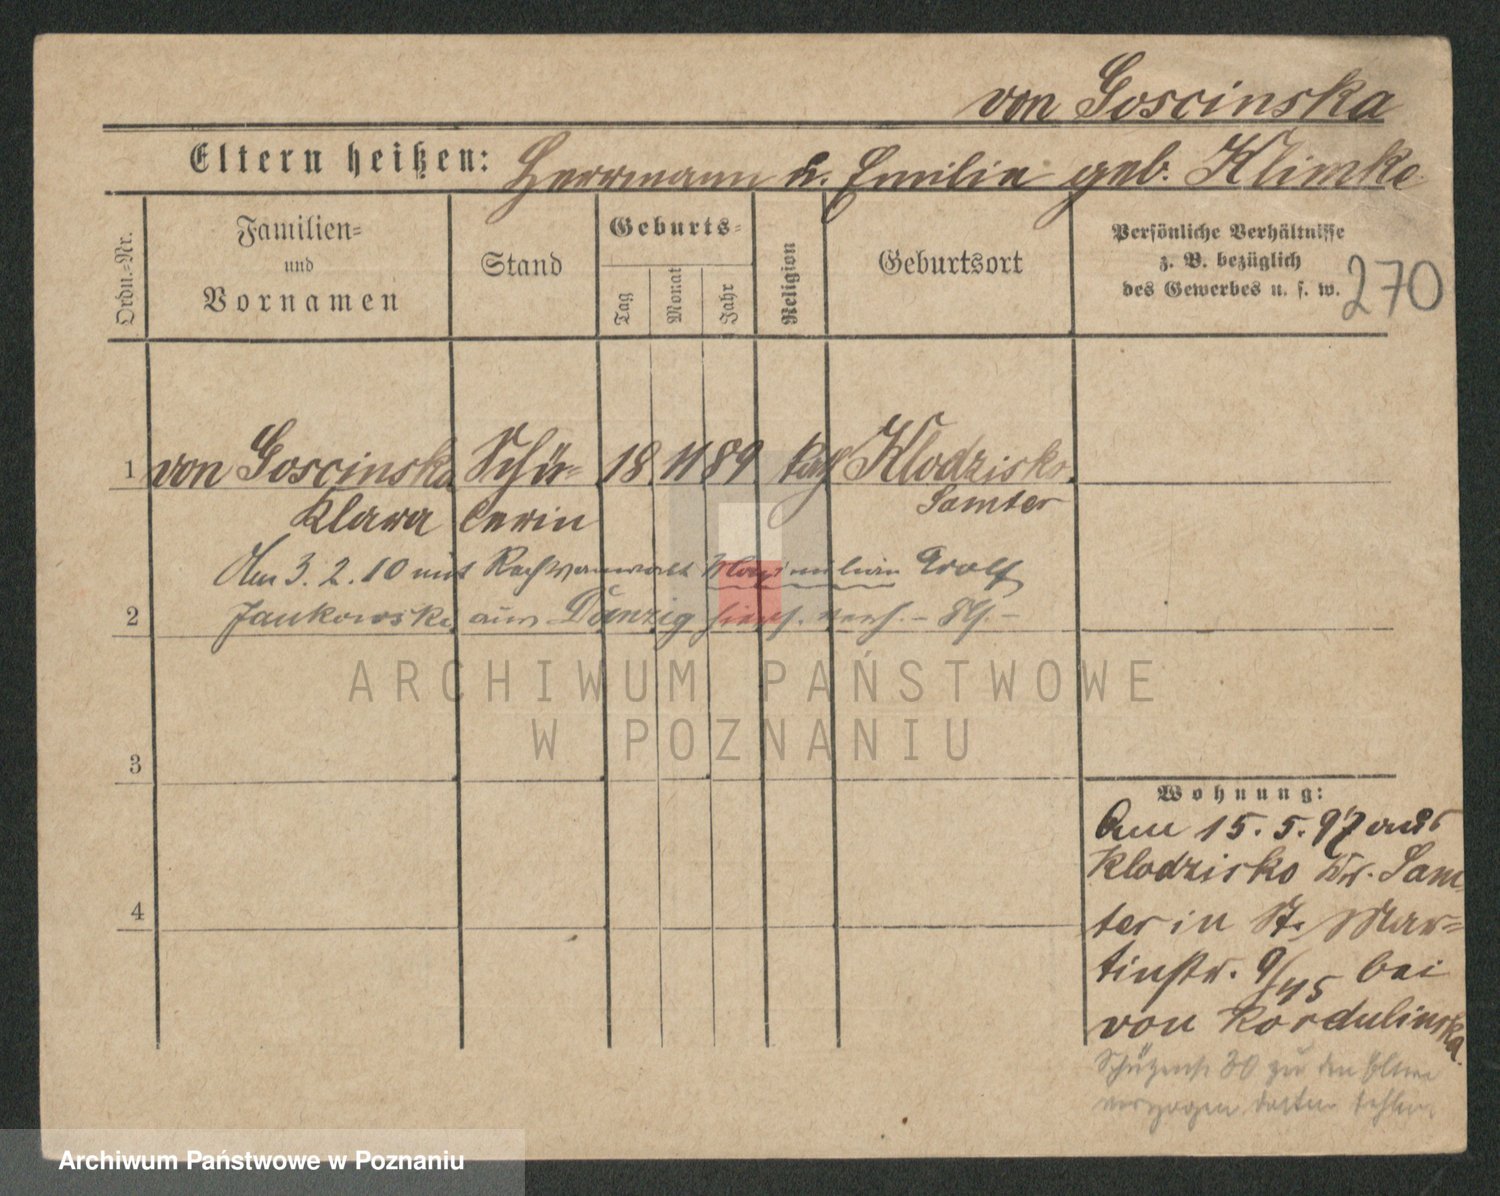 von Goscinska
Eltern heißen: Herrmann u. Emilie geb. Klimke
Ordn.-Nr.
Familien-
und
Vornamen
Stand
Geburts-
Tag
Monat
Jahr
Religion
Geburtsort
Persönliche Verhältnisse
z. B. bezüglich
des Gewerbes u. s. w.
270
1 von Goscinska Schü- 18 11 89 kath Klodzisko
Klara lerin Samter
Am 3. 2. 10 mit Rechtsanwalt Maximilian Wolf
2 Jankowski aus Danzig hier verh.
3
4
Wohnung:
Am 15. 5. 97 aus
Klodzisko Kr. Sam-
ter in St. Mar-
tinstr. 9/45 bei
von Kordulinska.
Schützenstr 30 zu den Eltern
verzogen
ARCHIWUM PAŃSTWOWE
W POZNANIU
Archiwum Państwowe w Poznaniu